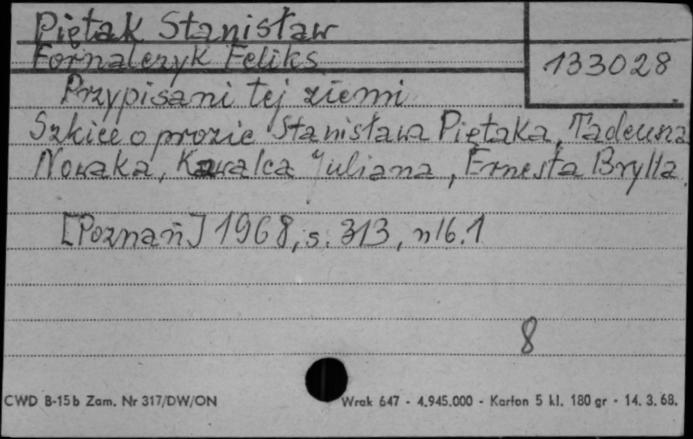 Piętak Stanisław
Fornalczyk Feliks
133028
Przypisani tej ziemi
Szkice o prozie Stanisława Piętaka, Tadeusza
Nowaka, Kawalca Juliana, Ernesta Brylla
[Poznań] 1968, s. 313, nlb. 1
8
CWD B-15b Zam. Nr 317/DW/ON
Wrak 647 - 4.945.000 - Karton 5 kl. 180 gr - 14. 3. 68.